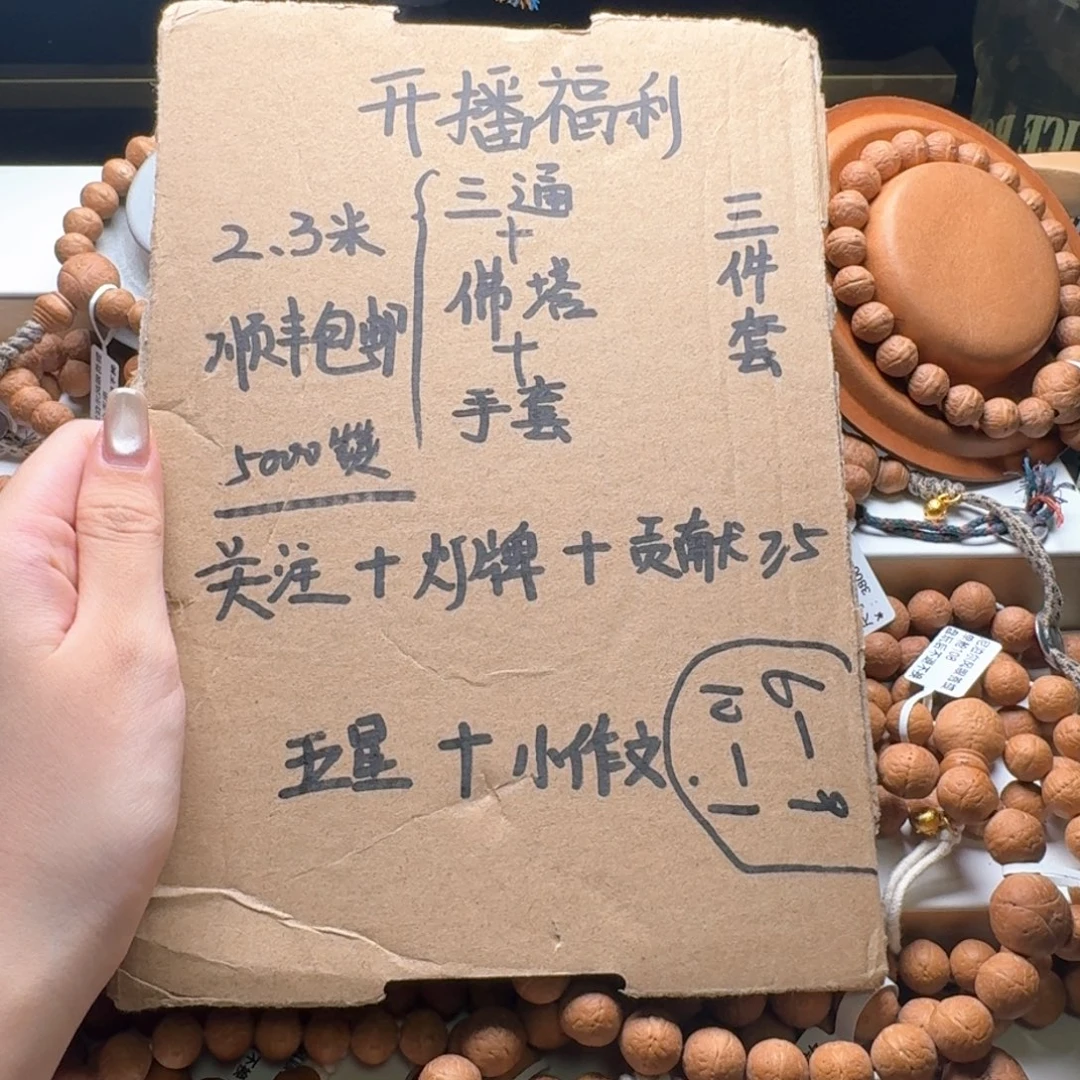 开播福利
2.3米
顺丰包邮
三通
+
佛塔
+
手套
三件套
5000赞
关注+灯牌+贡献≥5
五星+小作文
6-9
3800